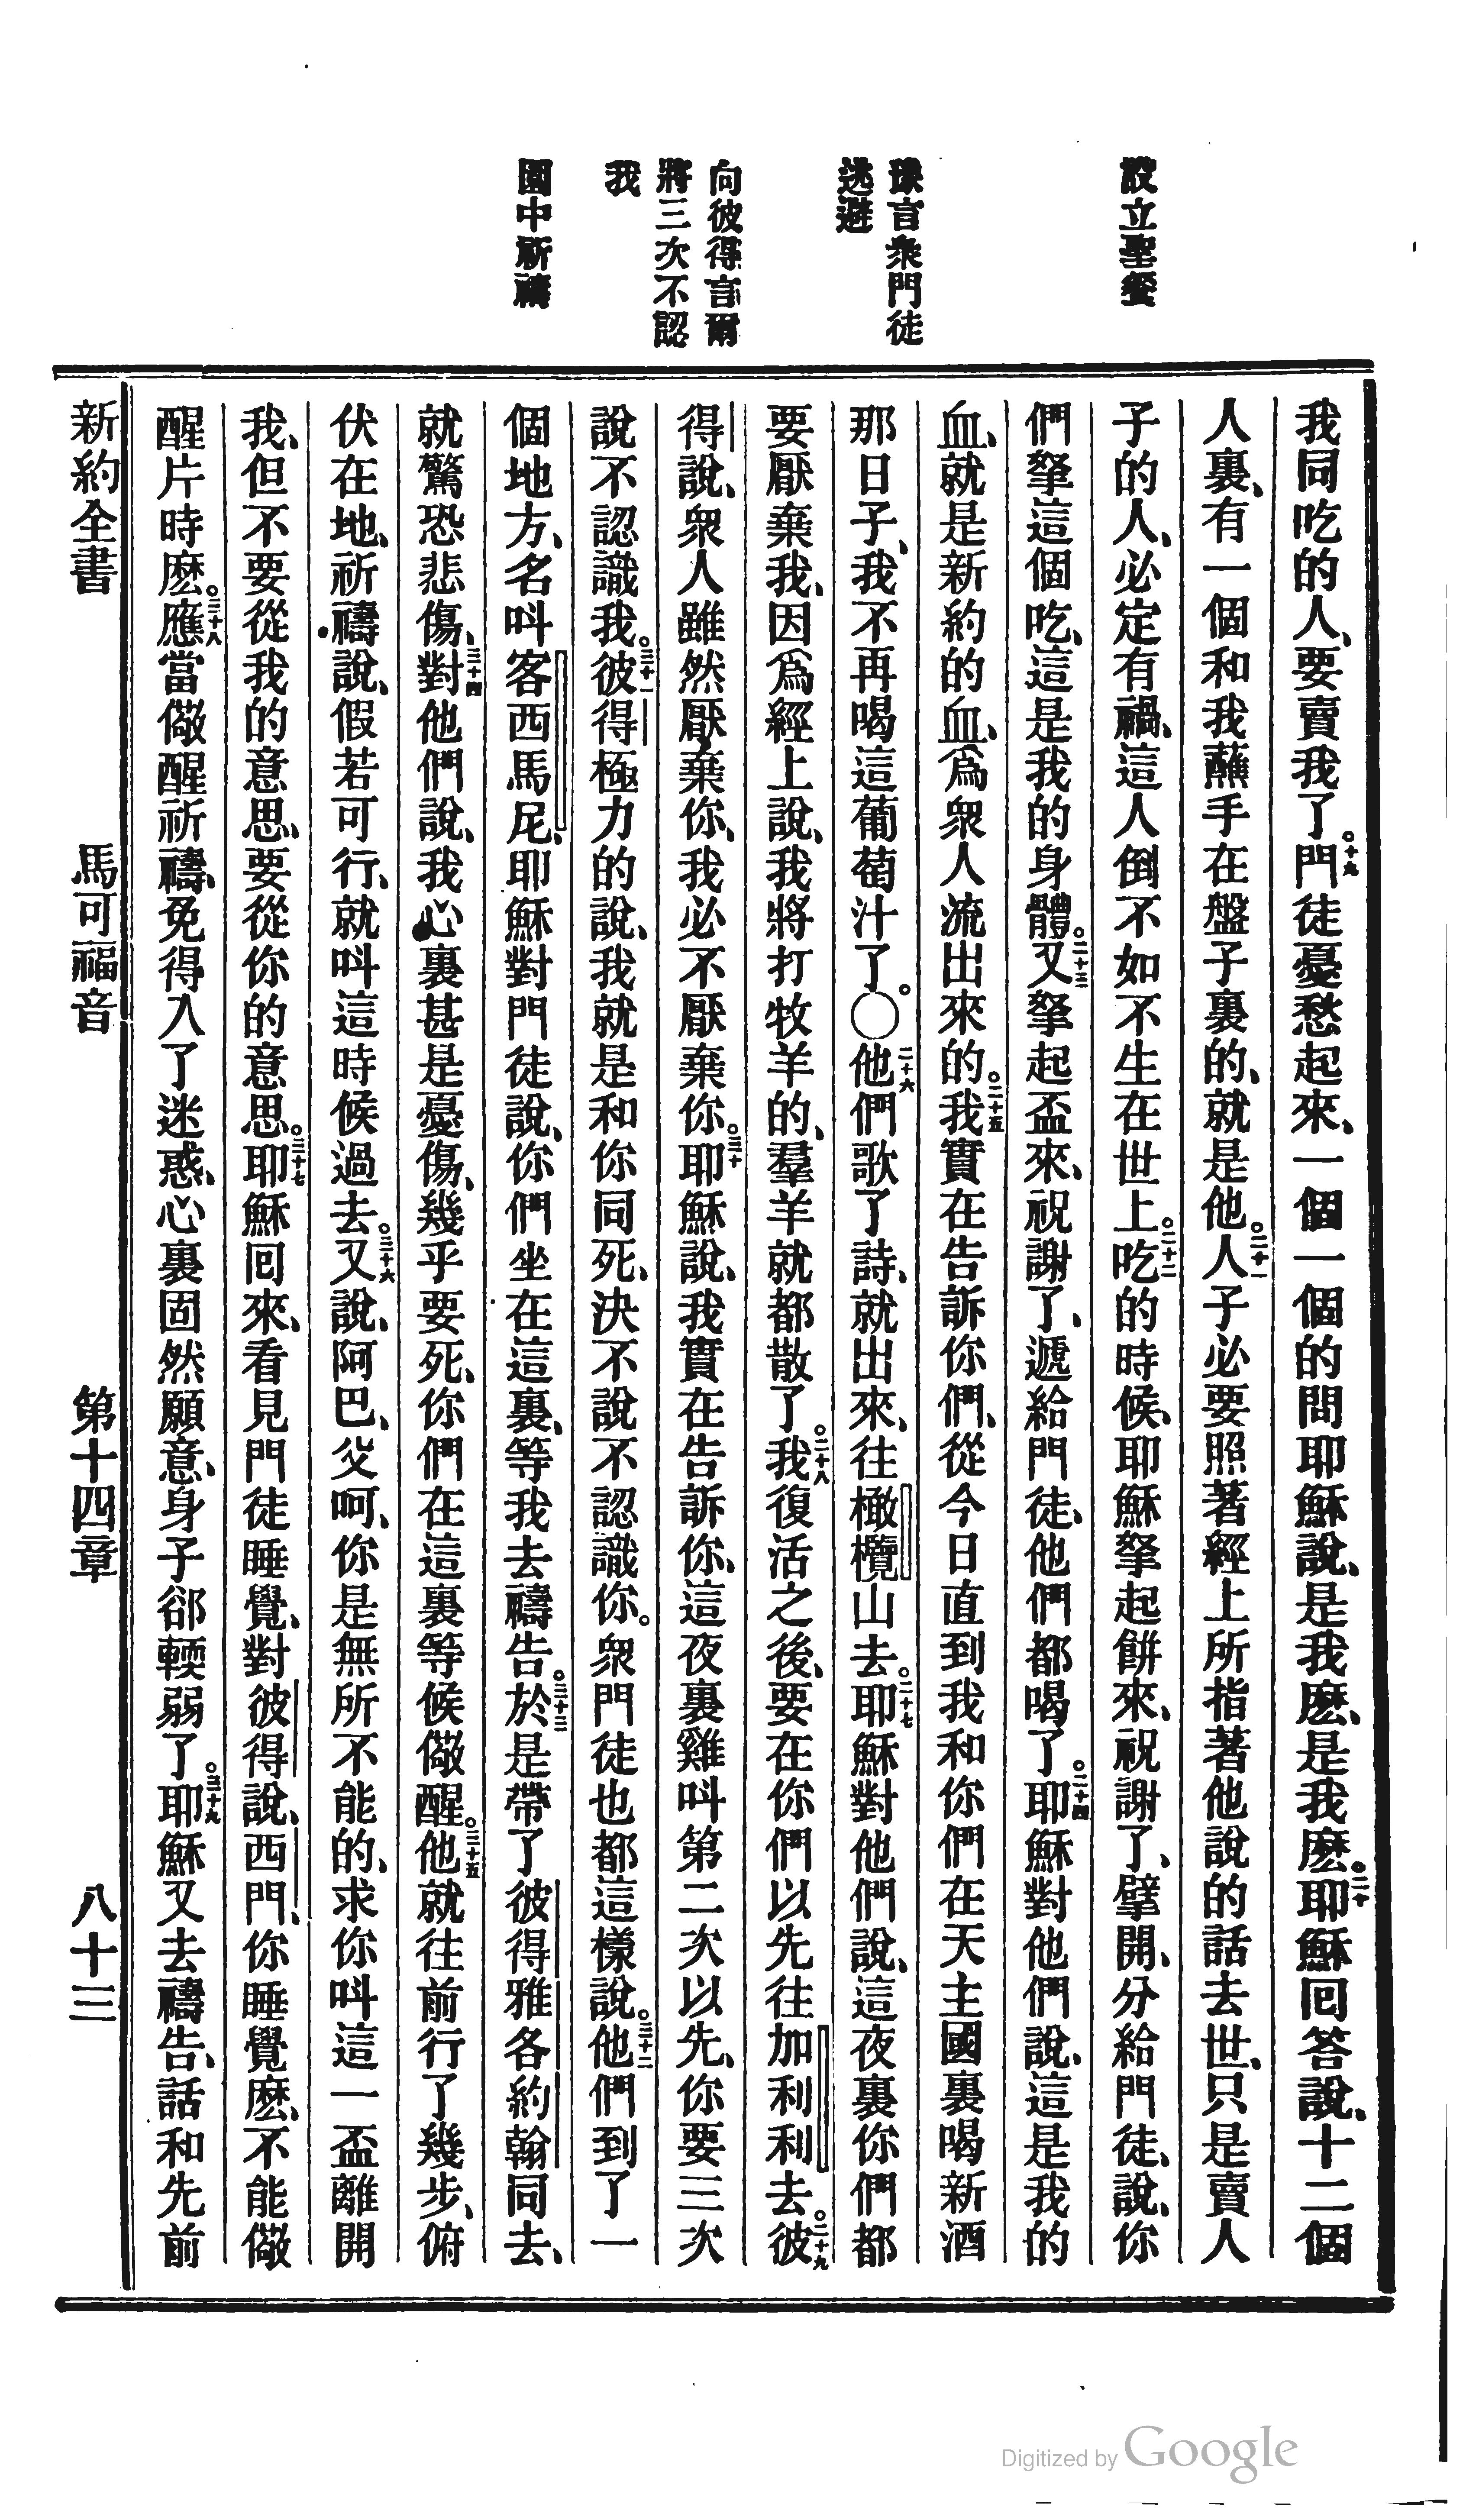 設立聖餐
豫言衆門徒
逃避
向彼得言爾
將三次不認
我
園中祈禱
我同吃的人、要賣我了。十九門徒憂愁起來、一個一個的問耶穌說、是我麽、是我麽。二十耶穌囘答說、十二個
人裏、有一個和我蘸手在盤子裏的、就是他。二十一人子必要照著經上所指著他說的話去世、只是賣人
子的人、必定有禍、這人倒不如不生在世上。二十二吃的時候、耶穌拏起餅來、祝謝了、擘開、分給門徒、說、你
們拏這個吃、這是我的身體。二十三又拏起盃來、祝謝了、遞給門徒、他們都喝了。二十四耶穌對他們說、這是我的
血、就是新約的血、爲衆人流出來的。二十五我實在告訴你們、從今日直到我和你們在天主國裏喝新酒
那日子、我不再喝這葡萄汁了。〇二十六他們歌了詩、就出來、往橄欖山去。二十七耶穌對他們說、這夜裏你們都
要厭棄我、因爲經上說、我將打牧羊的、羣羊就都散了。二十八我復活之後、要在你們以先往加利利去。二十九彼
得說、衆人雖然厭棄你、我必不厭棄你。三十耶穌說、我實在告訴你、這夜裏雞呌第二次以先、你要三次
說不認識我。三十一彼得極力的說、我就是和你同死、決不說不認識你。衆門徒也都這樣說。三十二他們到了一
個地方、名呌客西馬尼、耶穌對門徒說、你們坐在這裏、等我去禱告。三十三於是帶了彼得雅各約翰同去、
就驚恐悲傷、三十四對他們說、我心裏甚是憂傷、幾乎要死、你們在這裏等候儆醒。三十五他就往前行了幾步、俯
伏在地、祈禱說、假若可行、就呌這時候過去。三十六又說、阿巴、父呵、你是無所不能的、求你呌這一盃離開
我、但不要從我的意思、要從你的意思。三十七耶穌囘來、看見門徒睡覺、對彼得說、西門、你睡覺麽、不能儆
醒片時麽。三十八應當儆醒祈禱、免得入了迷惑、心裏固然願意、身子郤輭弱了。三十九耶穌又去禱告、話和先前
新約全書
馬可福音
第十四章
八十三
Digitized by Google